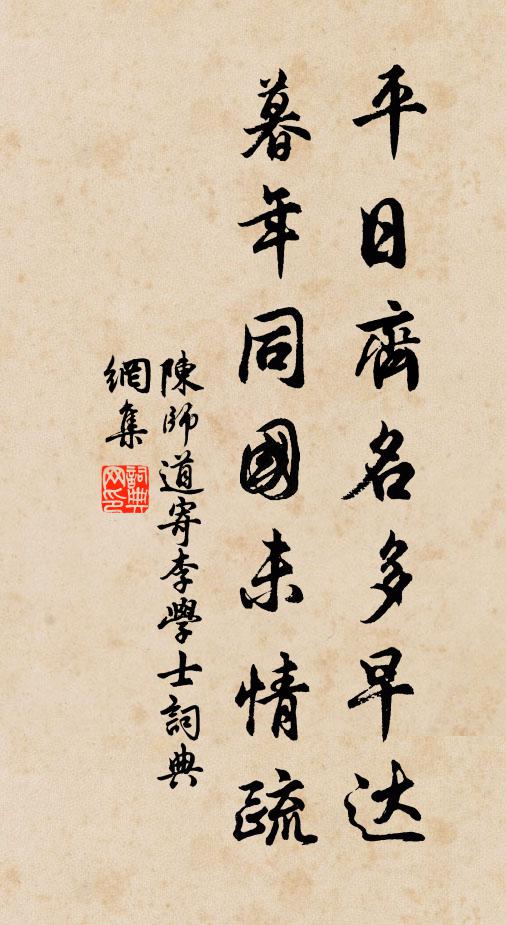 平日齊名多早达
暮年同國未情疏
陳師道寄李學士詞典
網集
詞典
网印